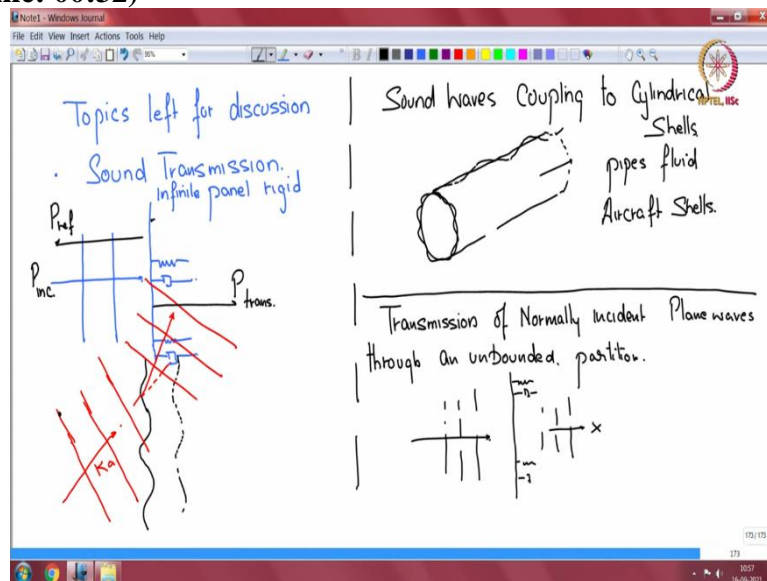 Note1 - Windows Journal
File Edit View Insert Actions Tools Help
NPTEL, IISc
Topics left for discussion
· Sound Transmission.
Infinite panel rigid
Pref
Pinc.
Ptrans.
Ka
Sound waves Coupling to Cylindrical
Shells
pipes fluid
Aircraft Shells.
Transmission of Normally incident Plane waves
through an unbounded. partition.
x
173/173
173
10:57
16-09-2021